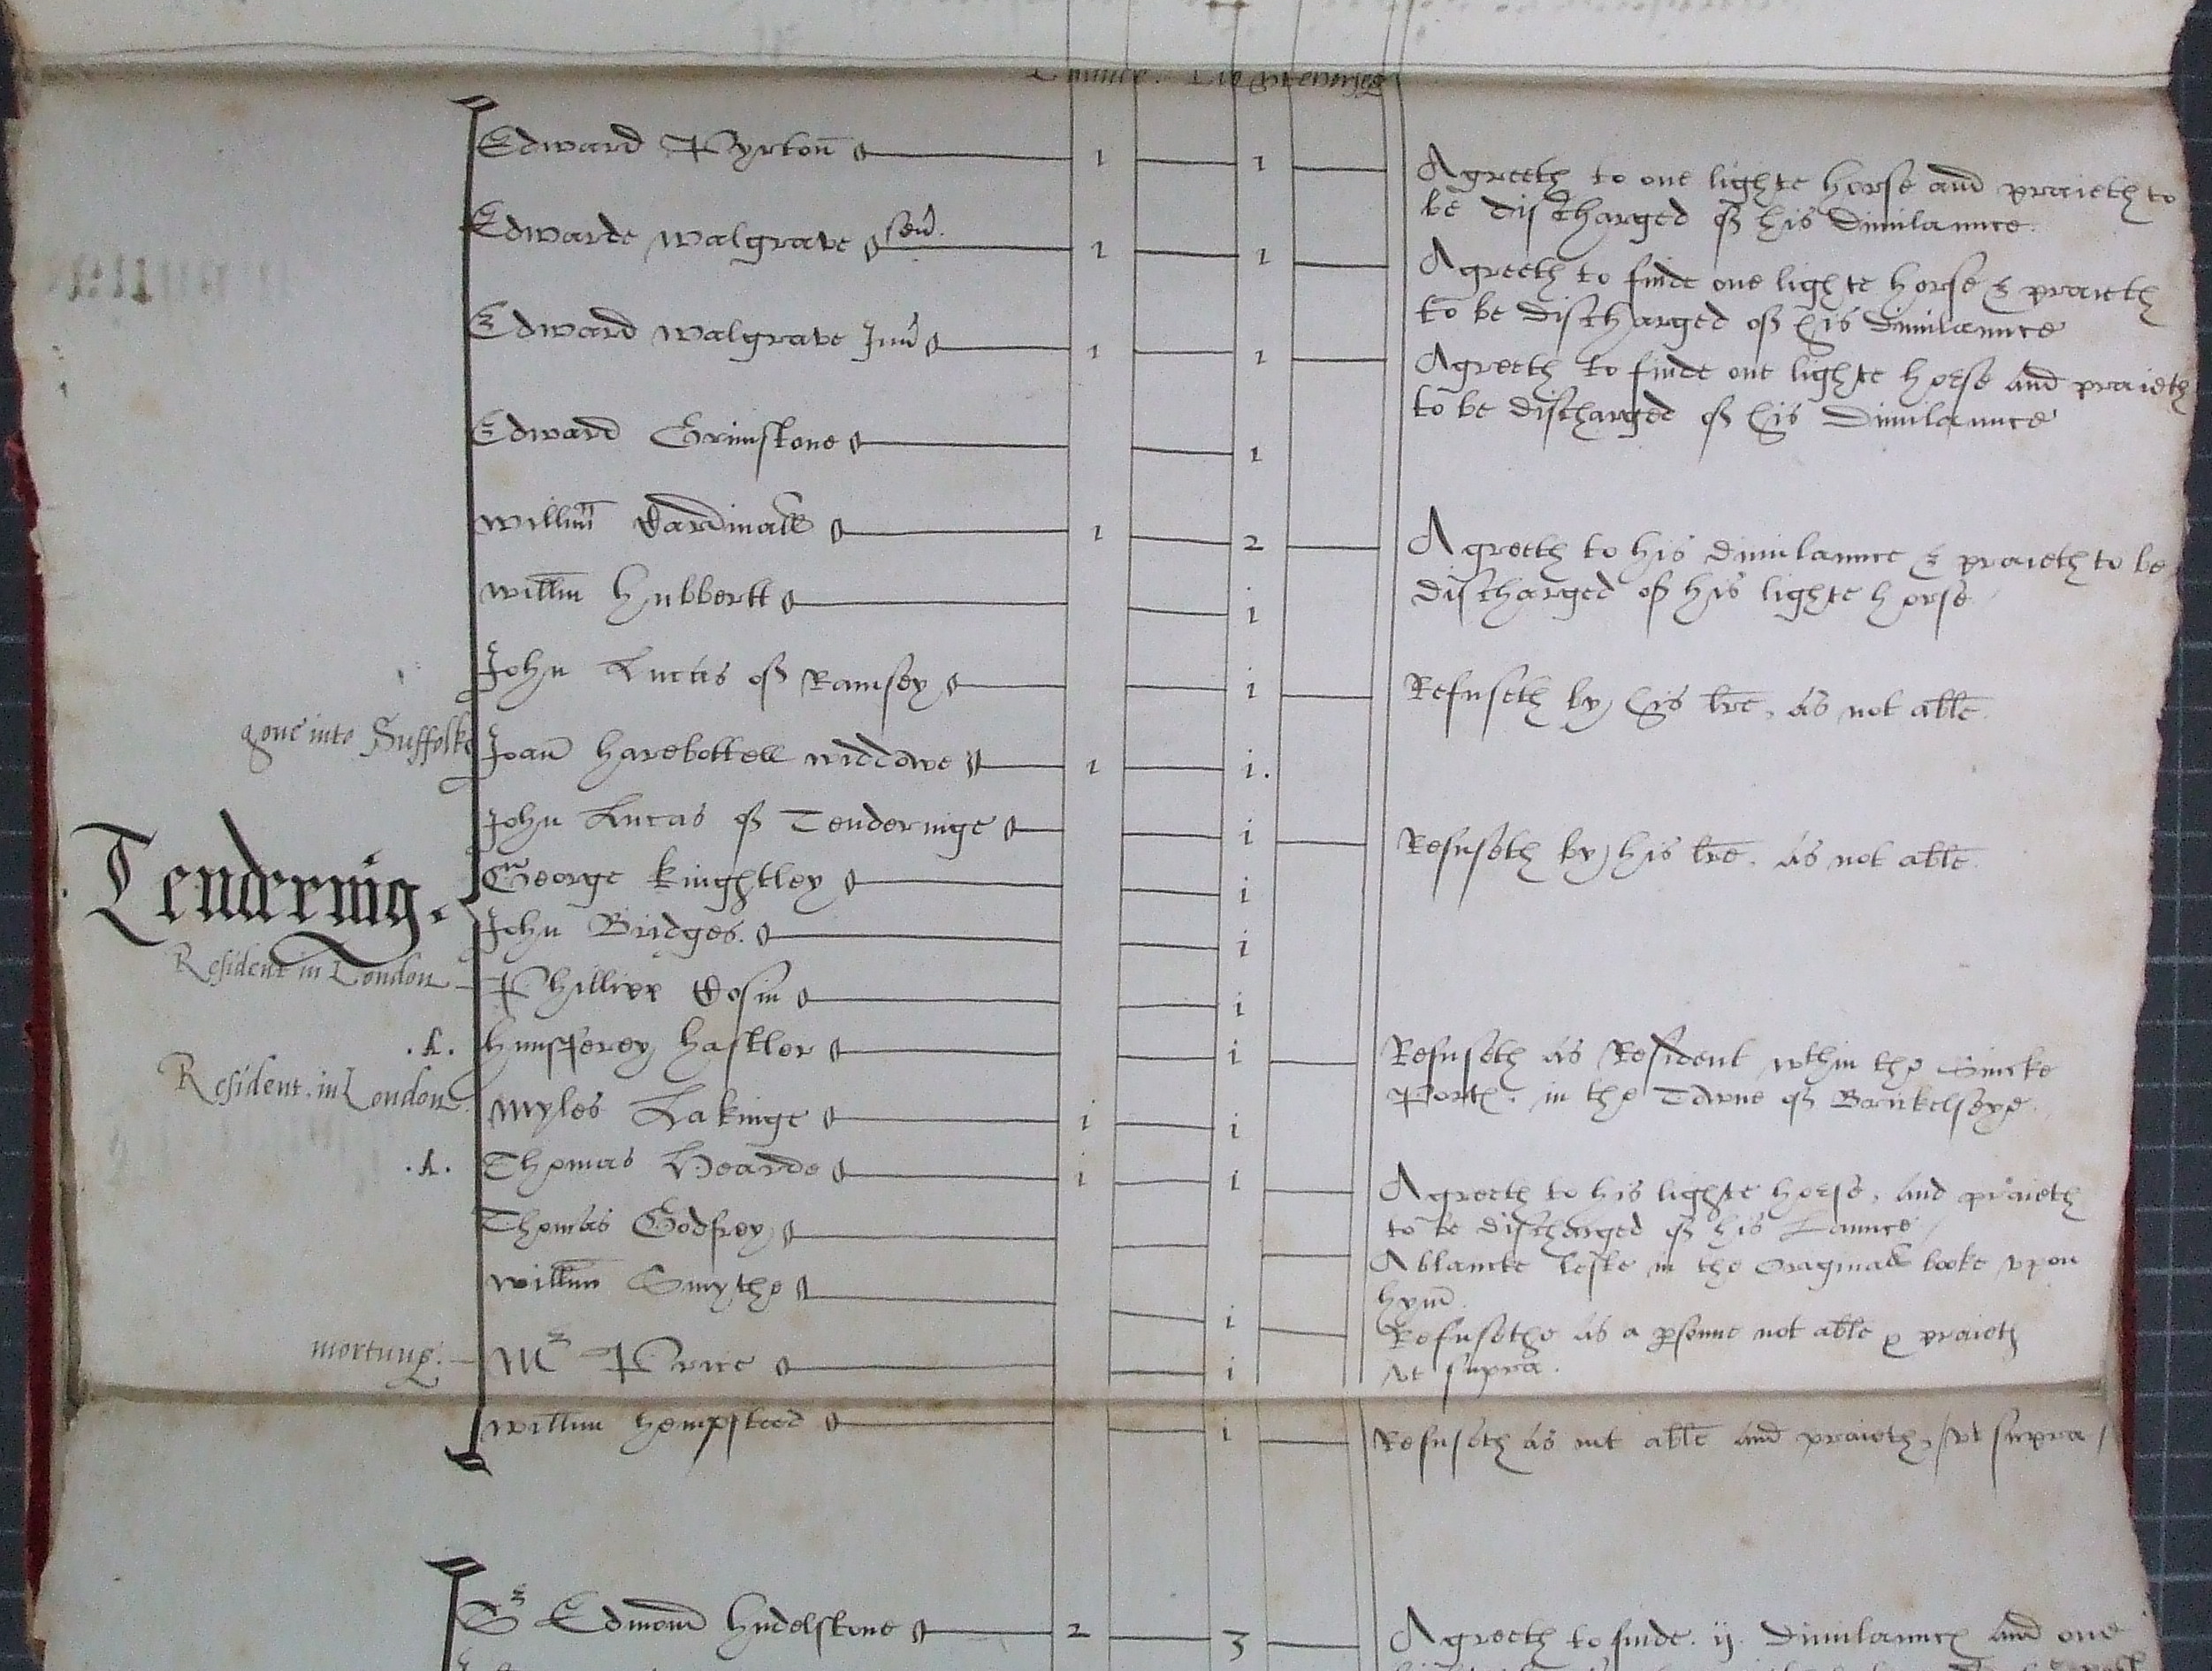 Edward Pyrton 1 1 Agreeth to one lighte horse and praieth to
be discharged of his Dimilaunce.
Edwarde Walgrave sen. 1 1 Agreeth to finde one lighte horse & praieth
to be discharged of his dimilaunce
Edward Walgrave Jun 1 1 Agreeth to finde one lighte horse and praieth
to be discharged of his Dimilaunce
Edward Grimstone 1
Willm Cardinall 1 2 Agreeth to his dimilaunce & praieth to be
discharged of his lighte horse
Willm Hubbertt i
John Lucas of Ramsey i Refuseth by his lre, as not able.
gone into Suffolke Joan Harebottell widdowe 1 i.
John Lucas of Tenderinge i Refuseth by his lre. as not able.
Tendering.
George Kinghtley i
John Bridges. i
Resident in London Phillipp Cosin i
.A. Humferey Hastler i Refuseth as Resident wthin the Sincke
Port. in the Towne of Brickelseye.
Resident in London Myles Lakinge i i
.A. Thomas Hearde i i Agreeth to his lighte horse, and praieth
to be discharged of his Launce
Thomas Godfrey A blancke lefte in the Originall booke upon
hym.
Willm Smythe i Refusethe as a psonne not able & praieth
ut supra.
mortuus. Mr Price i
Willm Hempsteed i Refuseth as not able and praieth, ut supra /
Sr Edmond Hudelstone 2 3 Agreeth to finde. ij. Dimilaunces and one